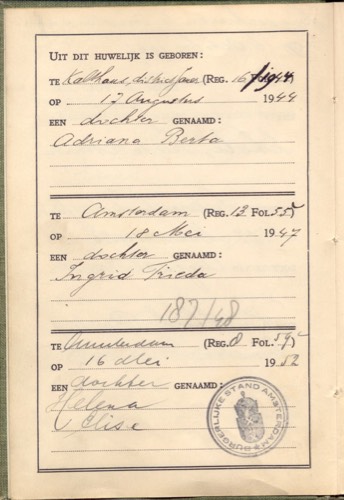 UIT DIT HUWELIJK IS GEBOREN:
TE (REG. 16/1944
OP 17 Augustus 1944
EEN dochter GENAAMD:
Adriana Berta
TE Amsterdam (REG. 13 FOL. 55
OP 18 Mei 1947
EEN dochter GENAAMD:
Ingrid Frieda
187/48
TE Amsterdam (REG. FOL. 59
OP 16 Mei 1952
EEN dochter GENAAMD:
Helena
Elise
BURGERLIJKE STAND AMSTERDAM